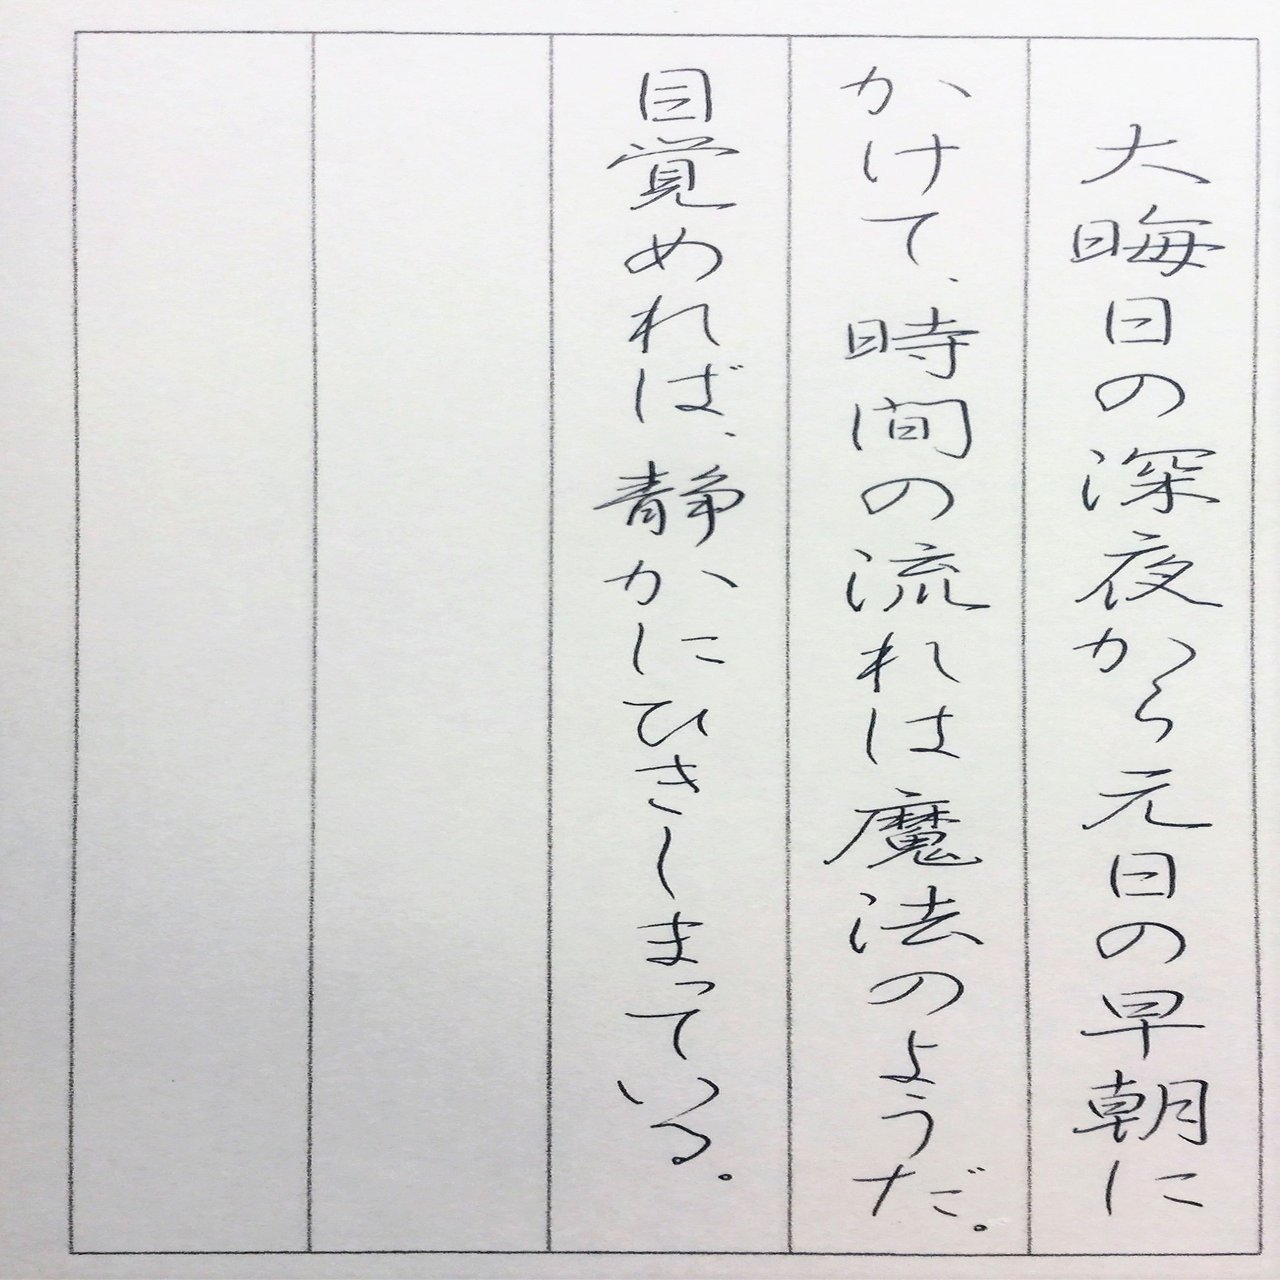 大晦日の深夜から元日の早朝に
かけて、時間の流れは魔法のようだ。
目覚めれば、静かにひきしまっている。